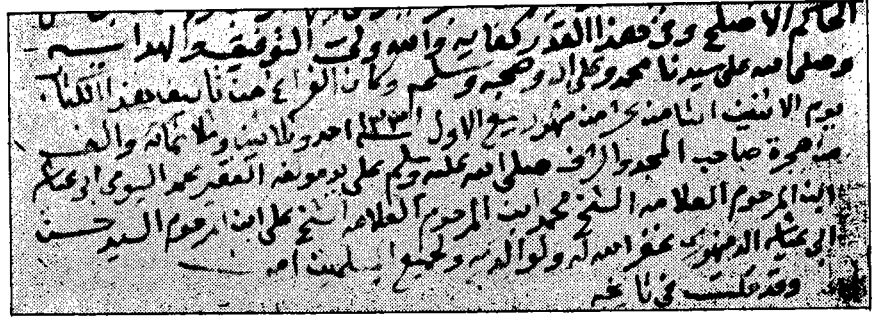 الحاكم الاصلح وفى هذا القدر كفاية والله ولى التوفيق والهداية
وصلى الله على سيدنا محمد وعلى اله وصحبه وسلم وكان الفراغ من تأليف هذا الكتاب
يوم الاثنين الثامن عشر من شهور ربيع الاول ١٣٣١ احد وثلاثين وثلاثمائة والف
من هجرة صاحب المجد والشرف صلى الله عليه وسلم على يد مؤلفه الفقير محمد البيومى ابى عياشه
ابن المرحوم العلامه الشيخ محمد ابن المرحوم العلامه الشيخ على ابن المرحوم السيد حسن
ابى عياشه الدمنهورى غفر الله له ولوالديه ولجميع المسلمين امين
وقد قلت فى تاريخه